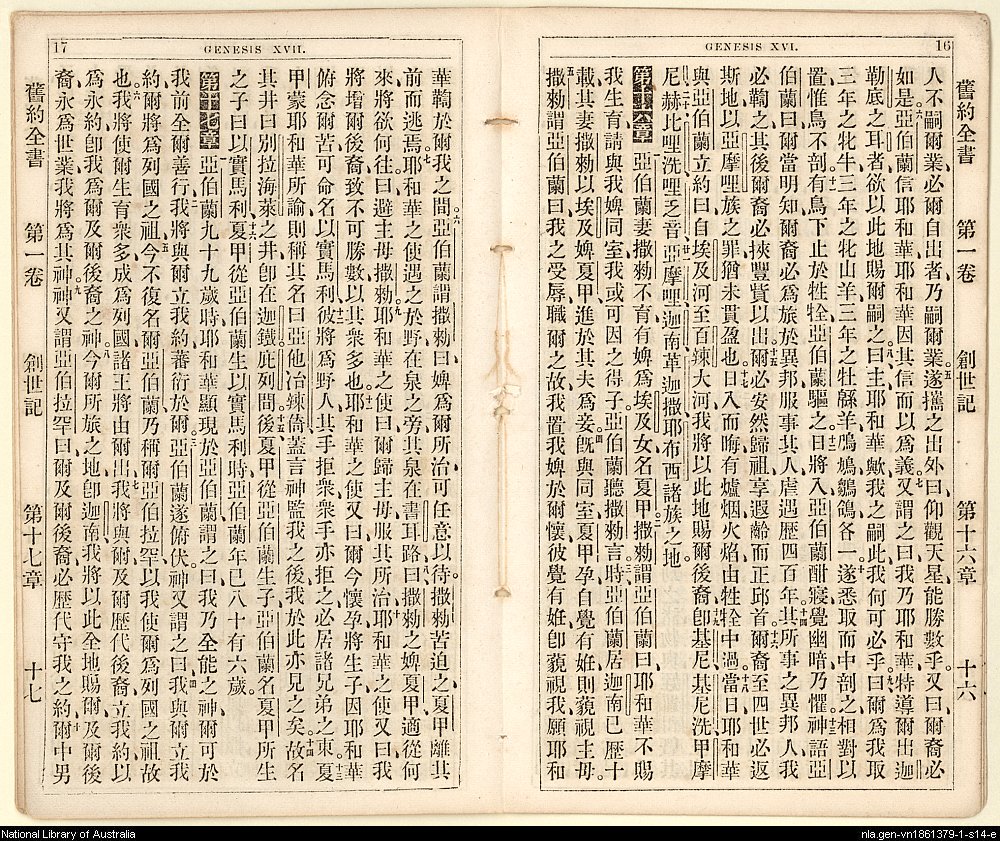 GENESIS XVI.
16
舊約全書 第一卷 創世記 第十六章 十六
人不嗣爾業、必爾自出者、乃嗣爾業、遂攜之出外、曰、仰觀天星、能勝數乎、又曰、爾裔必
如是、亞伯蘭信耶和華、耶和華因其信而以爲義、又謂之曰、我乃耶和華、特導爾出迦
勒底之耳者、欲以此地賜爾嗣之、曰、主耶和華歟、我之嗣此、我何可必乎、曰、爾爲我取
三年之牝牛、三年之牝山羊、三年之牡緜羊、鳲鳩鶵鴿各一、遂悉取而中剖之、相對以
置、惟鳥不剖、有鳥下止於牲、亞伯蘭驅之、日將入、亞伯蘭酣寢、覺幽暗、乃懼、神語亞
伯蘭曰、爾當明知爾裔必爲旅於異邦、服事其人、虐遇歷四百年、其所事之異邦人、我
必鞫之、其後爾裔必挾豐貲以出、爾必安然歸祖、享遐齡而正邱首、爾裔至四世、必返
斯地、以亞摩哩族之罪、猶未貫盈也、日入而晦、有爐烟火焰、由牲中過、當日耶和華
與亞伯蘭立約曰、自埃及河、至百辣大河、我將以此地賜爾後裔、卽基尼、基尼洗、甲摩
尼、赫、比哩洗、哩乏音、亞摩哩、迦南、革迦撒、耶布西、諸族之地。
第十六章 亞伯蘭妻撒勑不育、有婢爲埃及女、名夏甲、撒勑謂亞伯蘭曰、耶和華不賜
我生育、請與我婢同室、我或可因之得子、亞伯蘭聽撒勑言、時亞伯蘭居迦南、已歷十
載、其妻撒勑以埃及婢夏甲進於其夫爲妾、旣與同室、夏甲孕、自覺有姙、則藐視主母。
撒勑謂亞伯蘭曰、我之受辱、職爾之故、我置我婢於爾懷、彼覺有姙、卽藐視我、願耶和
GENESIS XVII.
17
華鞫於爾我之間、亞伯蘭謂撒勑曰、婢爲爾所治、可任意以待、撒勑苦迫之、夏甲離其
前而逃焉、耶和華之使遇之於野、在泉之旁、其泉在書耳路、曰、撒勑之婢夏甲、適從何
來、將欲何往、曰、避主母撒勑、耶和華之使曰、爾歸主母、服其所治、耶和華之使又曰、我
將增爾後裔、致不可勝數、以其衆多也、耶和華之使又曰、爾今懷孕、將生子、因耶和華
俯念爾苦、可命名以實馬利、彼將爲野人、其手拒衆、衆手亦拒之、必居諸兄弟之東、夏
甲蒙耶和華所諭、則稱其名曰、亞他冶辣倚、蓋言神監我之後、我於此亦見之矣、故名
其井曰、別拉海萊之井、卽在迦鐵庇列間、後夏甲從亞伯蘭生子、亞伯蘭名夏甲所生
之子曰以實馬利、夏甲從亞伯蘭生以實馬利時、亞伯蘭年已八十有六歲。
第十七章 亞伯蘭九十九歲時、耶和華顯現於亞伯蘭、謂之曰、我乃全能之神、爾可於
我前全爾善行、我將與爾立我約、蕃衍於爾、亞伯蘭遂俯伏、神又謂之曰、我與爾立我
約、爾將爲列國之祖、今不復名爾亞伯蘭、乃稱爾亞伯拉罕、以我使爾爲列國之祖故
也、我將使爾生育衆多、成爲列國、諸王將由爾出、我將與爾及爾歷代後裔、立我約、以
爲永約、卽我爲爾及爾後裔之神、今爾所旅之地、卽迦南、我將以此全地賜爾及爾後
裔、永爲世業、我將爲其神、神又謂亞伯拉罕曰、爾及爾後裔、必歷代守我之約、爾中男
舊約全書 第一卷 創世記 第十七章 十七
National Library of Australia
nla.gen-vn1861379-1-s14-e